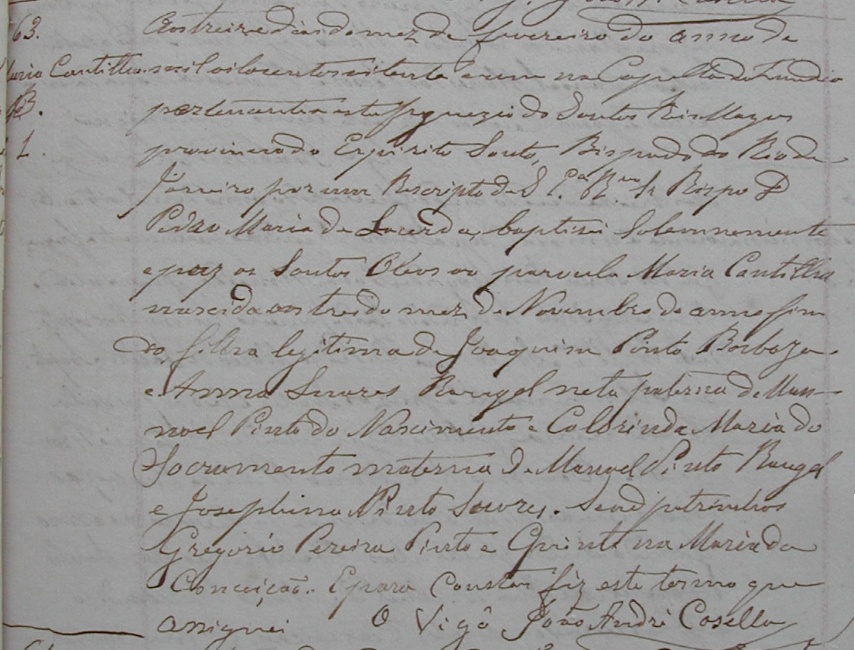 63.
Aos treze dias do mez de fevereiro do anno de
Maria Cantilha. mil oitocentos oitenta e um na Capella do Fundão
pertencente a esta freguezia dos Santos Reis Magos
provincia do Espirito Santo, Bispado do Rio de
1
Janeiro por um Rescripto de S. Exª Rma Sr Bispo D
Pedro Maria de Lacerda, baptisei Solemnemente
e puz os Santos Oleos ao parvula Maria Cantilha
nascida aos tres do mez de Novembro do anno fin
do, filha legitima de Joaquim Pinto Barboza
e Anna Soares Rangel neta paterna de Man
noel Pinto do Nascimento e Colorinda Maria do
Sacramento materna de Manoel Pinto Rangel
e Josephina Pinto Soares. Send padrinhos
Gregorio Pereira Pinto e Quintina Maria da
Conceição. E para constar fiz este termo que
assignei O Vigº João André Casella